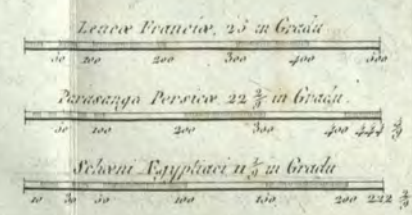 Leucæ Franciæ, 25 in Gradu
50 100 200 300 400 500
Parasanga Persicæ 22 2/9 in Gradu.
50 100 200 300 400 444 4/9
Schæni Ægyptiaci 11 1/9 in Gradu
10 30 50 100 150 200 222 2/9